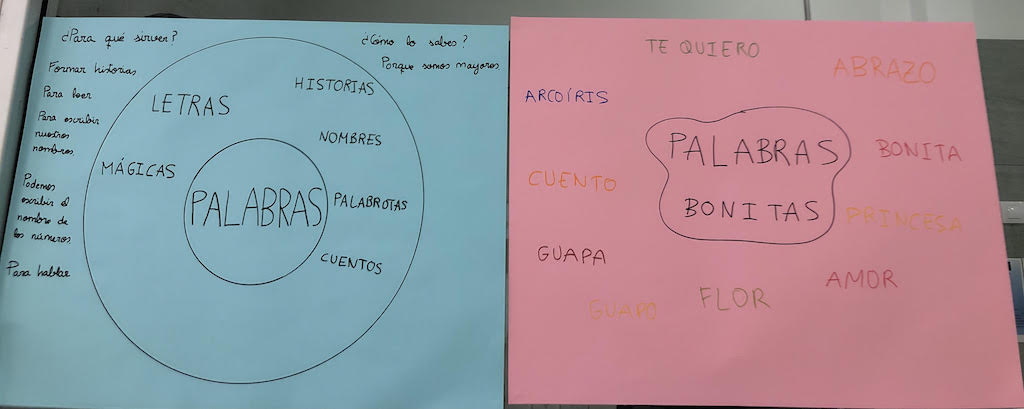 ¿Para qué sirven?
Formar historias
Para leer
Para escribir
nuestros
nombres.
Podemos
escribir el
nombre de
los números
Para hablar
¿Cómo lo sabes?
Porque somos mayores
LETRAS
HISTORIAS
NOMBRES
MÁGICAS
PALABRAS
PALABROTAS
CUENTOS
TE QUIERO
ABRAZO
ARCOÍRIS
PALABRAS
BONITAS
BONITA
CUENTO
PRINCESA
GUAPA
AMOR
GUAPO
FLOR